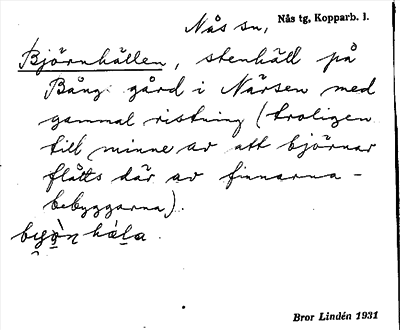 Nås sn, Nås tg, Kopparb. l.
Björnhällen, stenhäll på
Bång: gård i Närsen med
gammal ristning (troligen
till minne av att björnar
flåtts där av finnarna -
bebyggarna).
Bror Lindén 1931